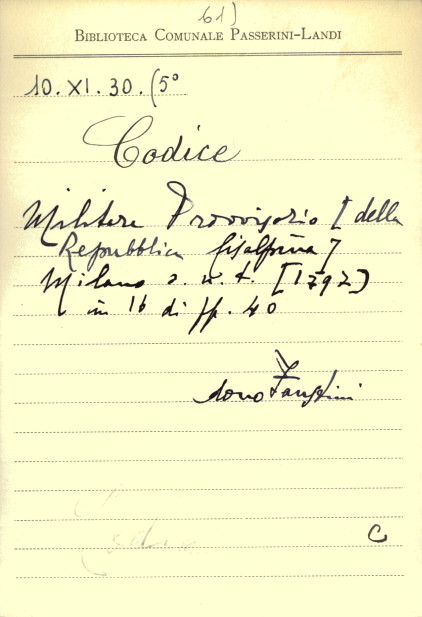 61)
BIBLIOTECA COMUNALE PASSERINI-LANDI
10. XI. 30. (5°
Codice
Militare Provvisorio [della
Repubblica Cisalpina]
Milano s. n. t. [1797)
in 16 di pp. 40
dono
C